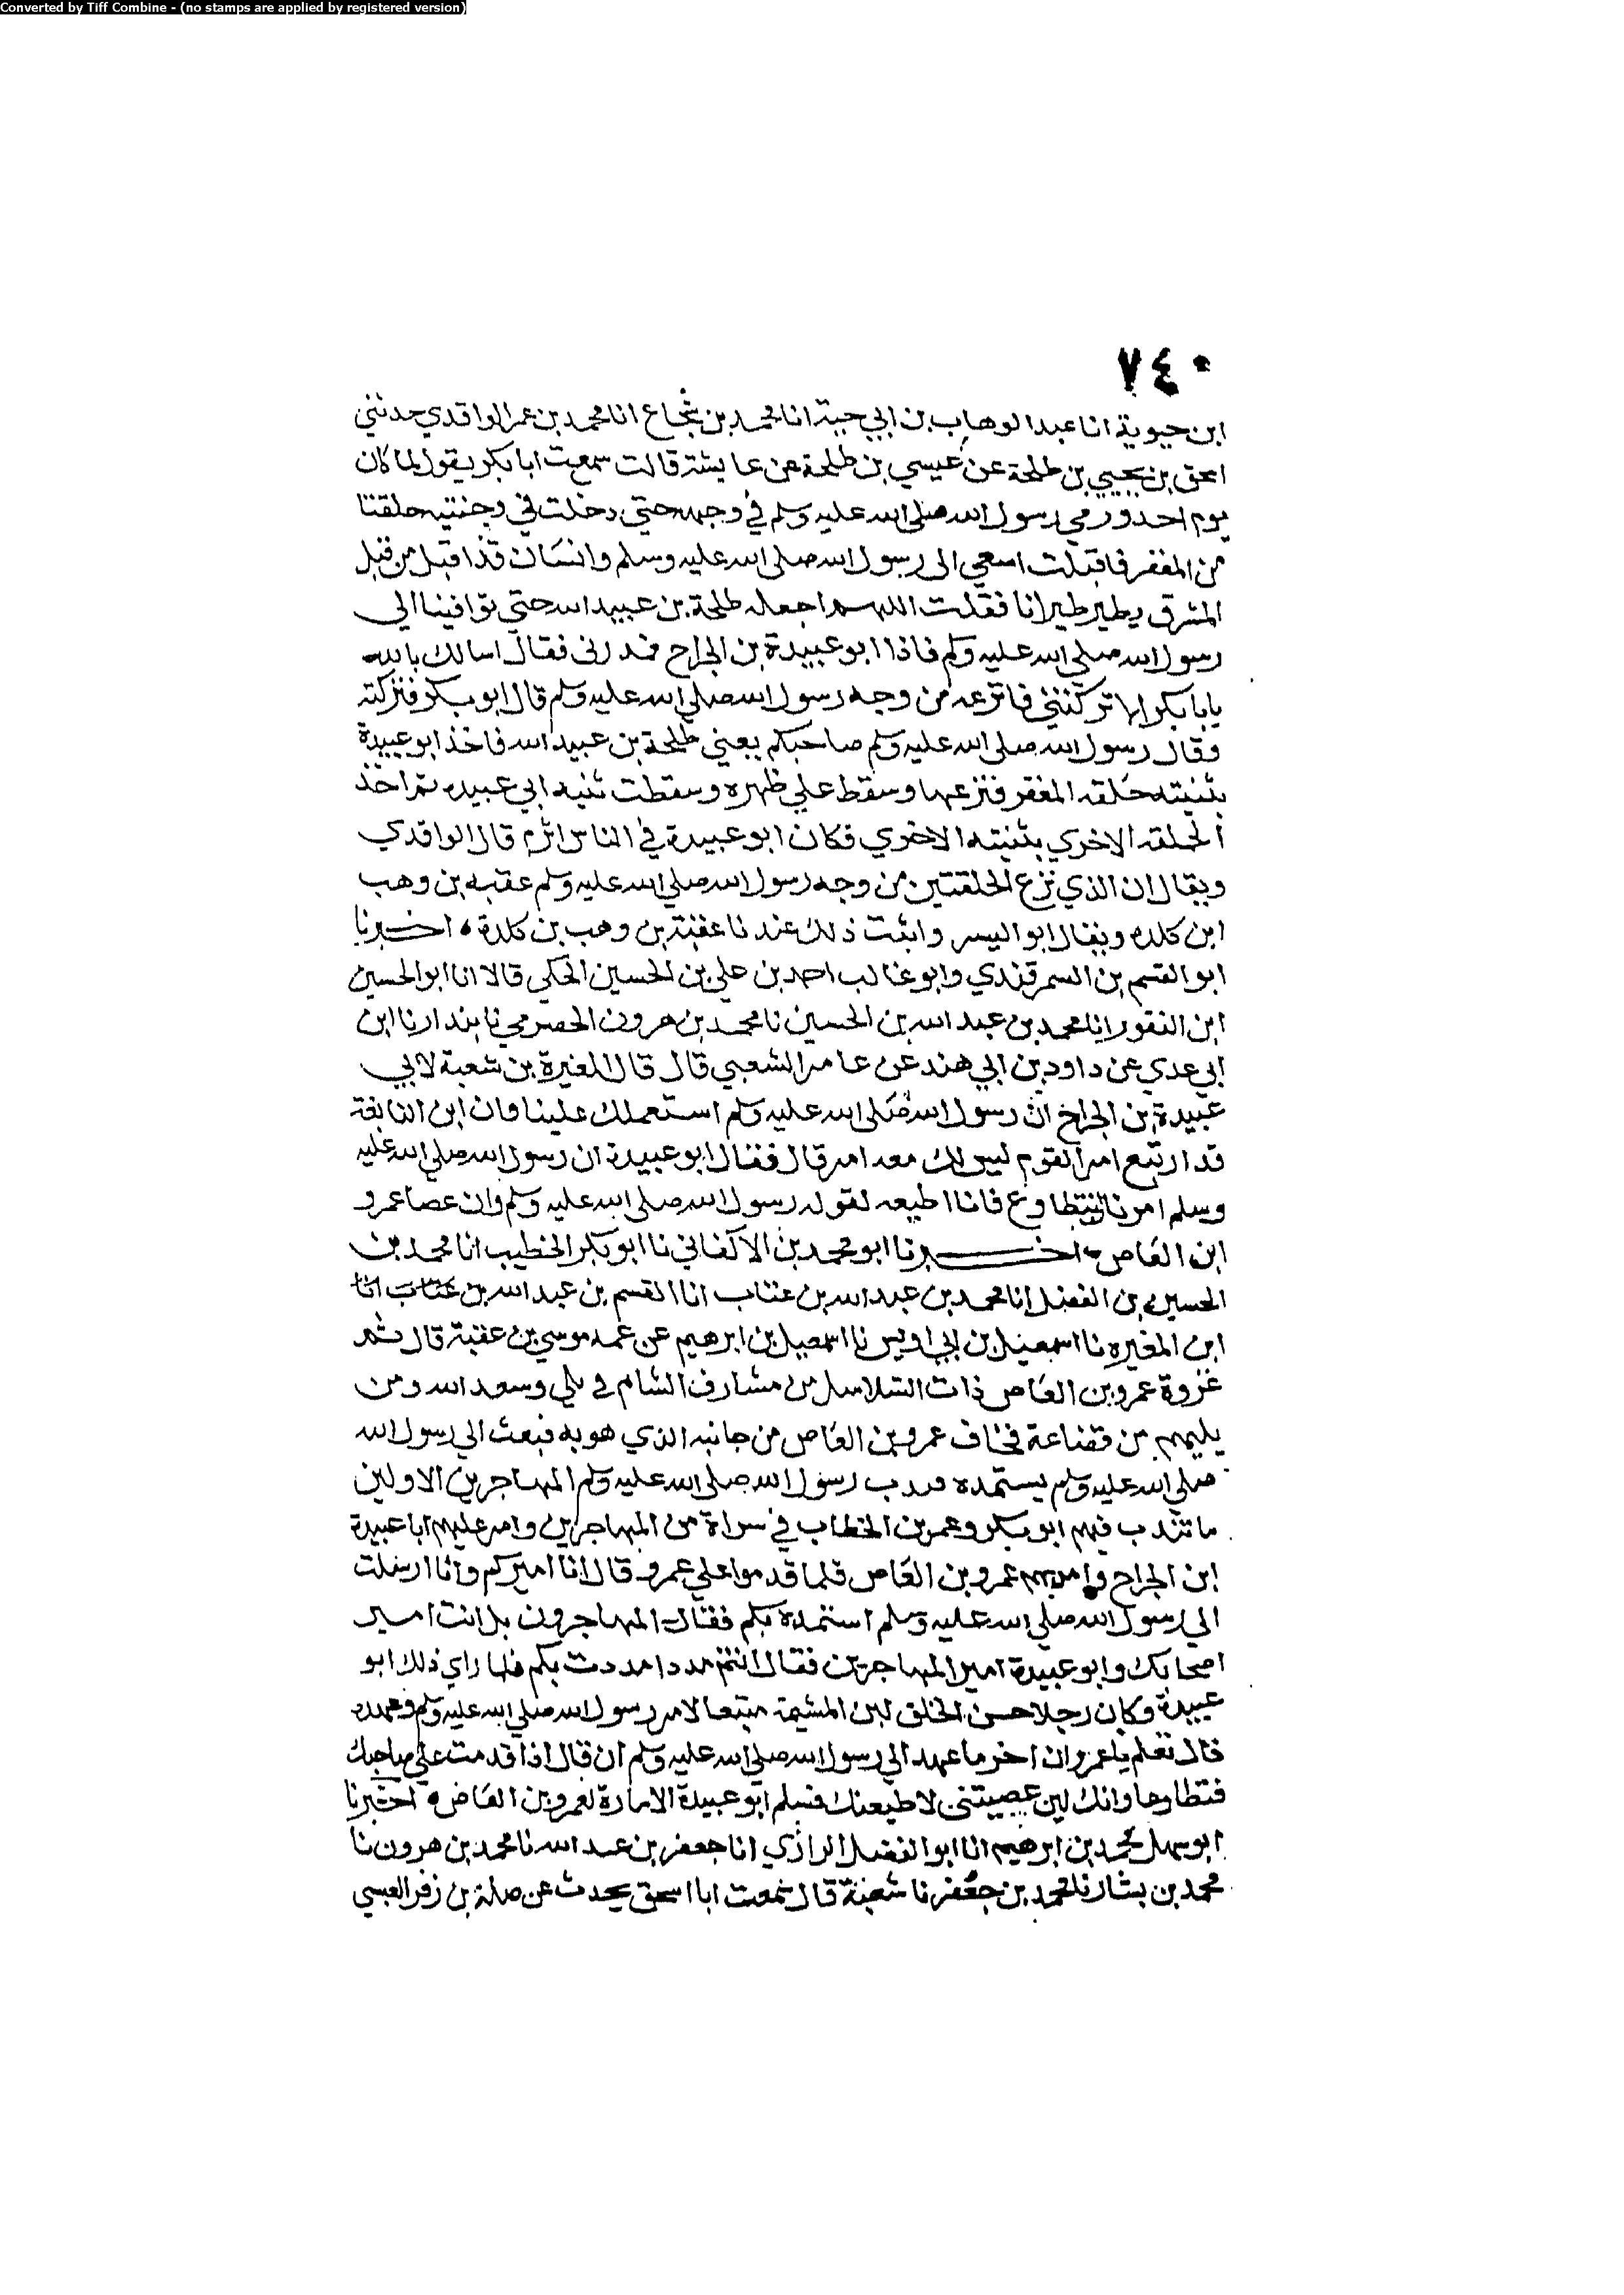 Converted by Tiff Combine - (no stamps are applied by registered version)
٧٤٠
ابن حيوية انا عبد الوهاب بن ابي حية انا محمد بن شجاع انا محمد بن عمر الواقدي حدثني
اسحق بن يحيي بن طلحة عن عيسي بن طلحة عن عايشة قالت سمعت ابا بكر يقول لما كان
يوم احد ورمي رسول الله صلى الله عليه وسلم في وجهه حتي دخلت في وجنتيه حلقتا
من المغفر فاقبلت اسعي الى رسول الله صلى الله عليه وسلم وانسان قد اقبل من قبل
المشرق يطير طيرانا فقلت اللهم اجعله طلحة بن عبيد الله حتي توافينا الي
رسول الله صلى الله عليه وسلم فاذا ابو عبيدة بن الجراح فبدرني فقال اسالك بالله
يابا بكر الا تركتني فانزعه من وجه رسول الله صلى الله عليه وسلم قال ابو بكر فتركته
وقال رسول الله صلى الله عليه وسلم صاحبكم يعني طلحة بن عبيد الله فاخذ ابو عبيدة
بثنيته حلقه المغفر فنزعها وسقط علي ظهره وسقطت ثنيه ابي عبيده ثم اخذ
الحلقه الاخري بثنيته الاخري فكان ابو عبيدة في الناس اثرم قال الواقدي
ويقال ان الذي نزع الحلقتين من وجه رسول الله صلي الله عليه وسلم عقبه بن وهب
ابن كلده ويقال ابو اليسر واثبت ذلك عندنا عقبة بن وهب بن كلدة ، اخبرنا
ابو القسم بن السمرقندي وابو غالب احمد بن علي بن الحسين الحكي قالا انا ابو الحسين
ابن النقور انا محمد بن عبد الله بن الحسين نا محمد بن هرون الحضرمي نا بندار نا ابن
ابي عدي عن داود بن ابي هند عن عامر الشعبي قال قال المغيرة بن شعبة لابي
عبيدة بن الجراح ان رسول الله صلى الله عليه وسلم استعملك علينا وان ابن النابغة
قد ارتبع امر القوم ليس لك معه امر قال فقال ابو عبيدة ان رسول الله صلي الله عليه
وسلم امرنا ان نتطاوع فانا اطيعه لقول رسول الله صلى الله عليه وسلم وان عصا عمرو
ابن العاص ، اخبرنا ابو محمد بن الاكفاني نا ابو بكر الخطيب انا محمد بن
الحسين بن الفضل انا محمد بن عبد الله بن عتاب انا القسم بن عبد الله بن عتاب انا
ابن المغيره نا اسمعيل بن ابي اويس نا اسمعيل بن ابرهيم عن عمه موسي بن عقبة قال ثم
غزوة عمرو بن العاص ذات السلاسل من مشارف الشام في بلي وسعد الله ومن
يليهم من قضاعة فخاف عمرو بن العاص من جانبه الذي هو به فبعث الي رسول الله
صلي الله عليه وسلم يستمده فندب رسول الله صلى الله عليه وسلم المهاجرين الاولين
فانتدب فيهم ابو بكر وعمر بن الخطاب في سراة من المهاجرين وامر عليهم ابا عبيدة
ابن الجراح وامد بهم عمرو بن العاص فلما قدموا علي عمرو قال انا اميركم وانا ارسلت
الي رسول الله صلي الله عليه وسلم استمده بكم فقال المهاجرون بل انت امير
اصحابك وابو عبيدة امير المهاجرين فقال انتم مدد امددت بكم فلما راي ذلك ابو
عبيدة وكان رجلا حسن الخلق لين الشيمة متبعا لامر رسول الله صلي الله عليه وسلم وعهده
قال تعلم يا عمرو ان اخر ما عهد الي رسول الله صلي الله عليه وسلم ان قال اذا قدمت علي صاحبك
فتطاوعا وانك لين عصيتني لاطيعنك فسلم ابو عبيدة الامارة لعمرو بن العاص ، اخبرنا
ابو سهل محمد بن ابرهيم انا ابو الفضل الرازي انا جعفر بن عبد الله نا محمد بن هرون نا
محمد بن بشار نا محمد بن جعفر نا شعبة قال سمعت ابا اسحق يحدث عن صلة بن زفر العبسي